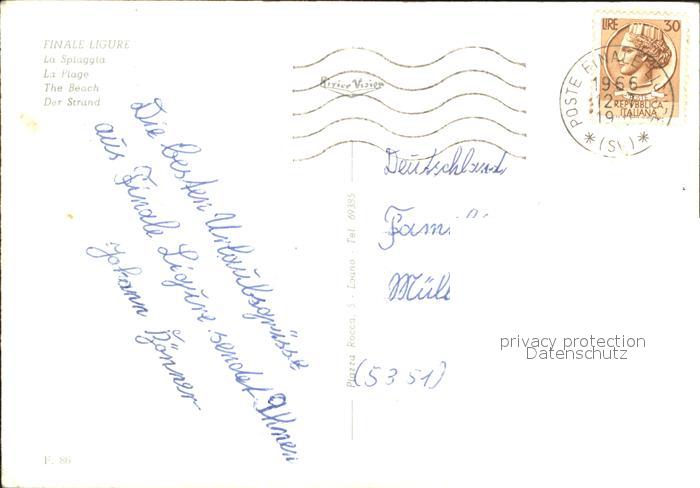 FINALE LIGURE
La Spiaggia
La Plage
The Beach
Der Strand
LIRE 30
REPVBBLICA
ITALIANA
POSTE FINALE
1966
12
19
*(SV)*
Die besten Urlaubsgrüsse
aus Finale Ligure sendet Ihnen
Johann
Deutschland
Fami
Mül
(5351)
Piazza Rocca, 5 - Loano - Tel. 69385
privacy protection
Datenschutz
F. 86